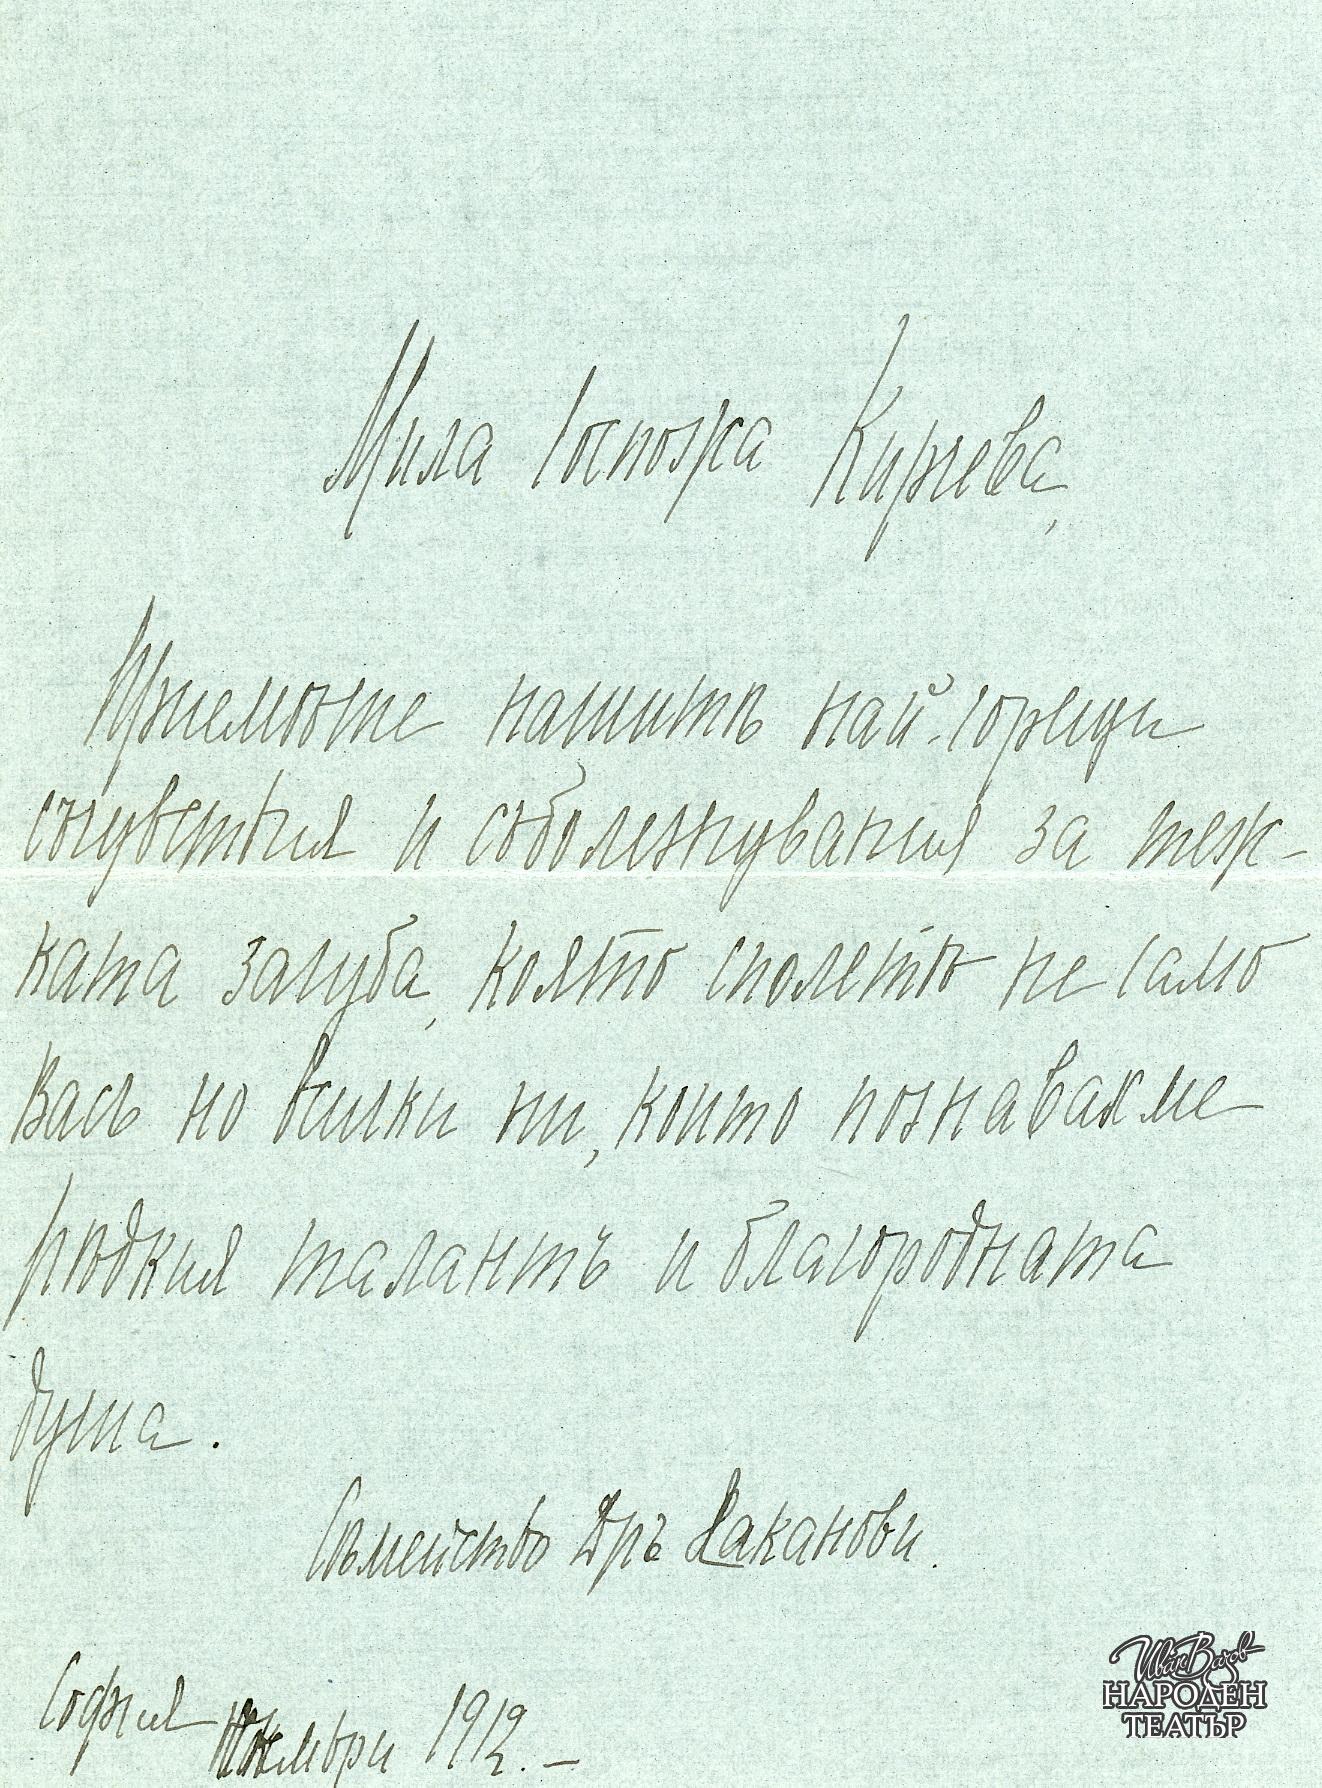 Мила Госпожа Кирчева,
Приемѣте нашитѣ най-горещи
съчувствия и съболезнувания за теж-
ката загуба, която сполетѣ не само
Васъ но всички ни, които познавахме
рѣдкия талантъ и благородната
душа.
Семейство Дръ Хаканови.
София
Ноемврий 1912.-
Иван Вазов
НАРОДЕН
ТЕАТЪР